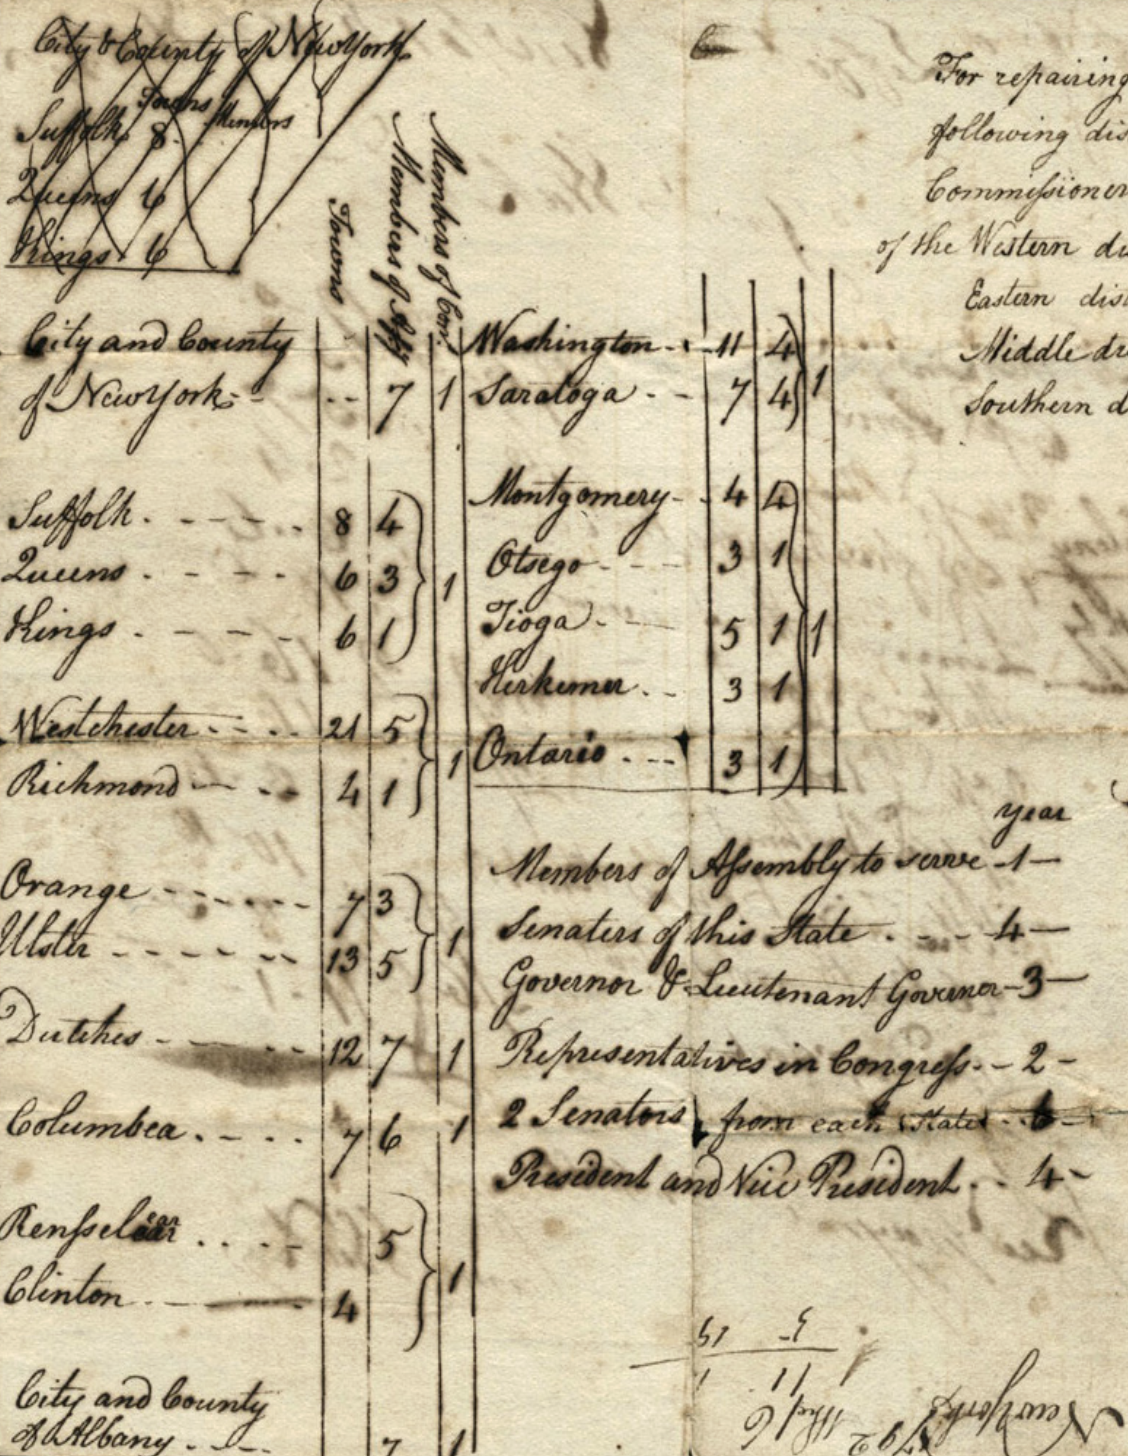 City & County of New York
Towns Members
Suffolk 8
Queens 6
Kings 6
Towns
Members of Assy
Members of Con.
City and County
of New York - - - 7 1
Suffolk. - - - - 8 4
Queens. - - - 6 3 1
Kings. - - - - 6 1
Westchester. - - . 21 5
Richmond - - . - 4 1 1
Orange - - - - - 7 3
Ulster - - - - - - 13 5 1
Dutches - - - 12 7 1
Columbea. - - . . 7 6 1
Rensselear . . . - 5
Clinton - - 4 1
City and County
of Albany. - - - 7 1
Washington - . - 11 4
Saratoga - - 7 4 1
Montgomery - . 4 4
Otsego - - - 3 1
Tioga - - - 5 1 1
Herkemer. - 3 1
Ontario . - - 3 1
year
Members of Assembly to serve - 1 -
Senaters of this State . - - - 4 -
Governor & Lieutenant Governor - 3 -
Representatives in Congress. - - 2 -
2 Senators from each State - . 6 -
President and Vice President . . 4 -
For repairing
following dis
Commissioner
of the Western di
Eastern dis
Middle
Southern d
New York